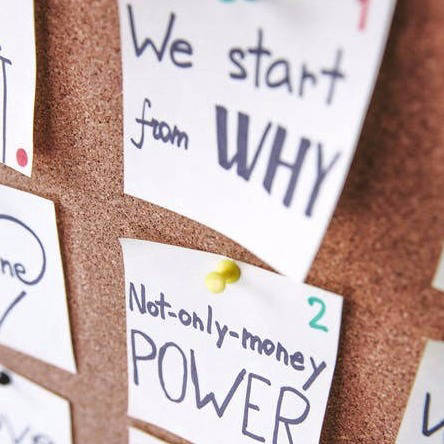 We start
from WHY
2
Not-only-money
POWER
ne